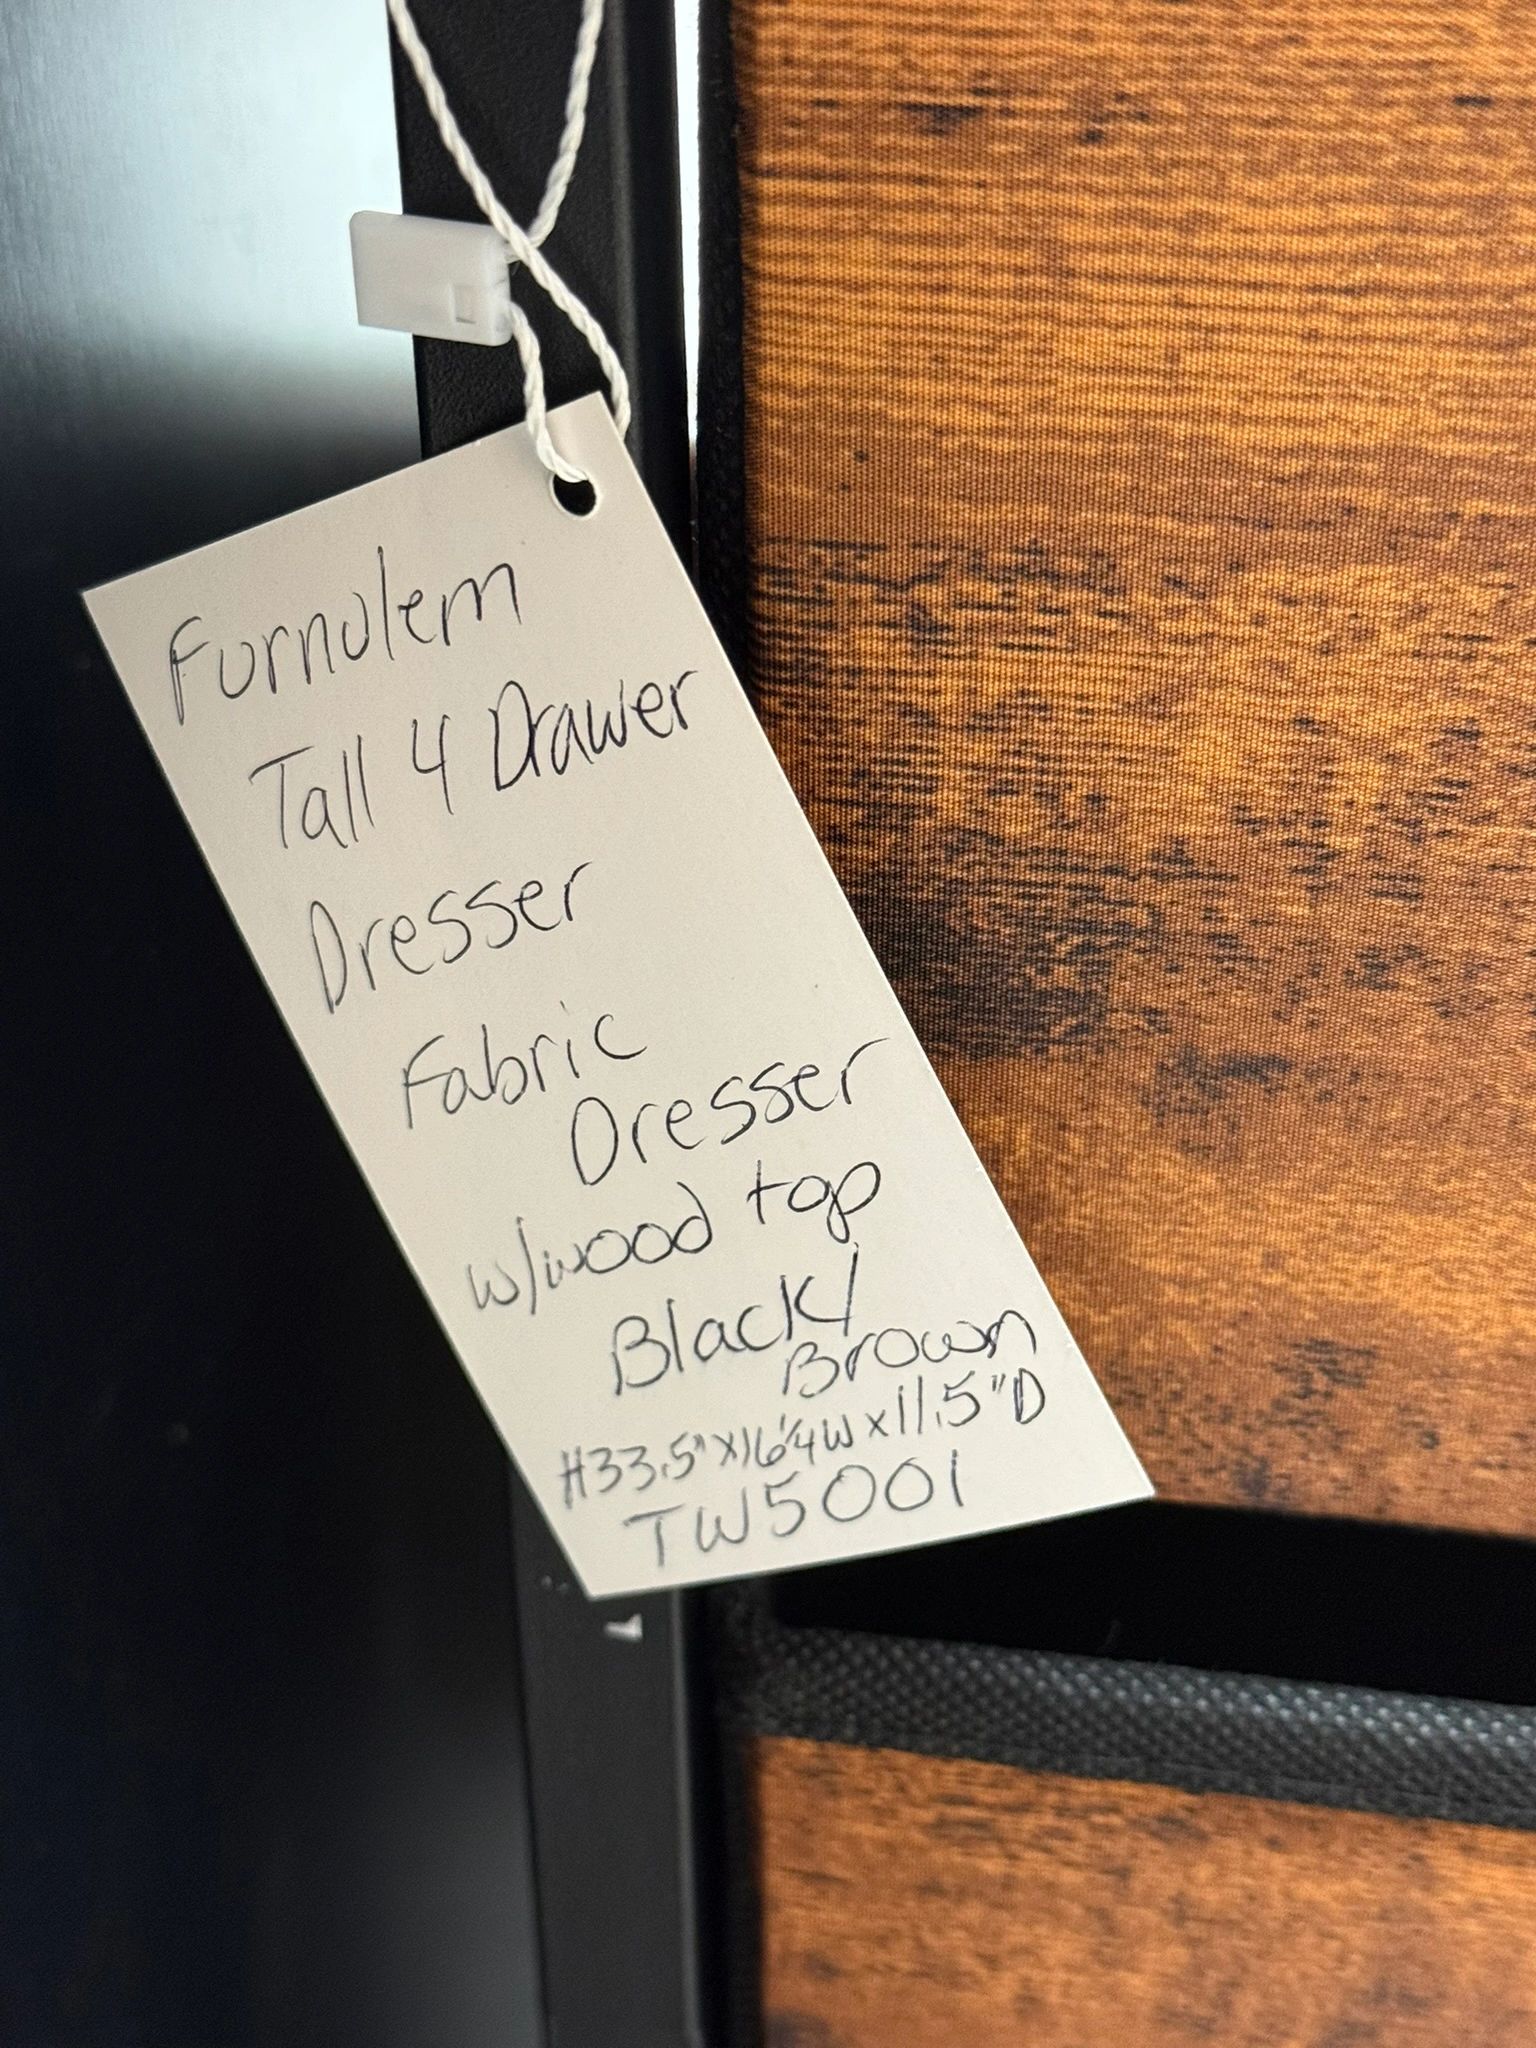 Furnulem
Tall 4 Drawer
Dresser
Fabric
Dresser
w/wood top
Black/
Brown
H33.5"x16¼W x 11.5"D
TW5001